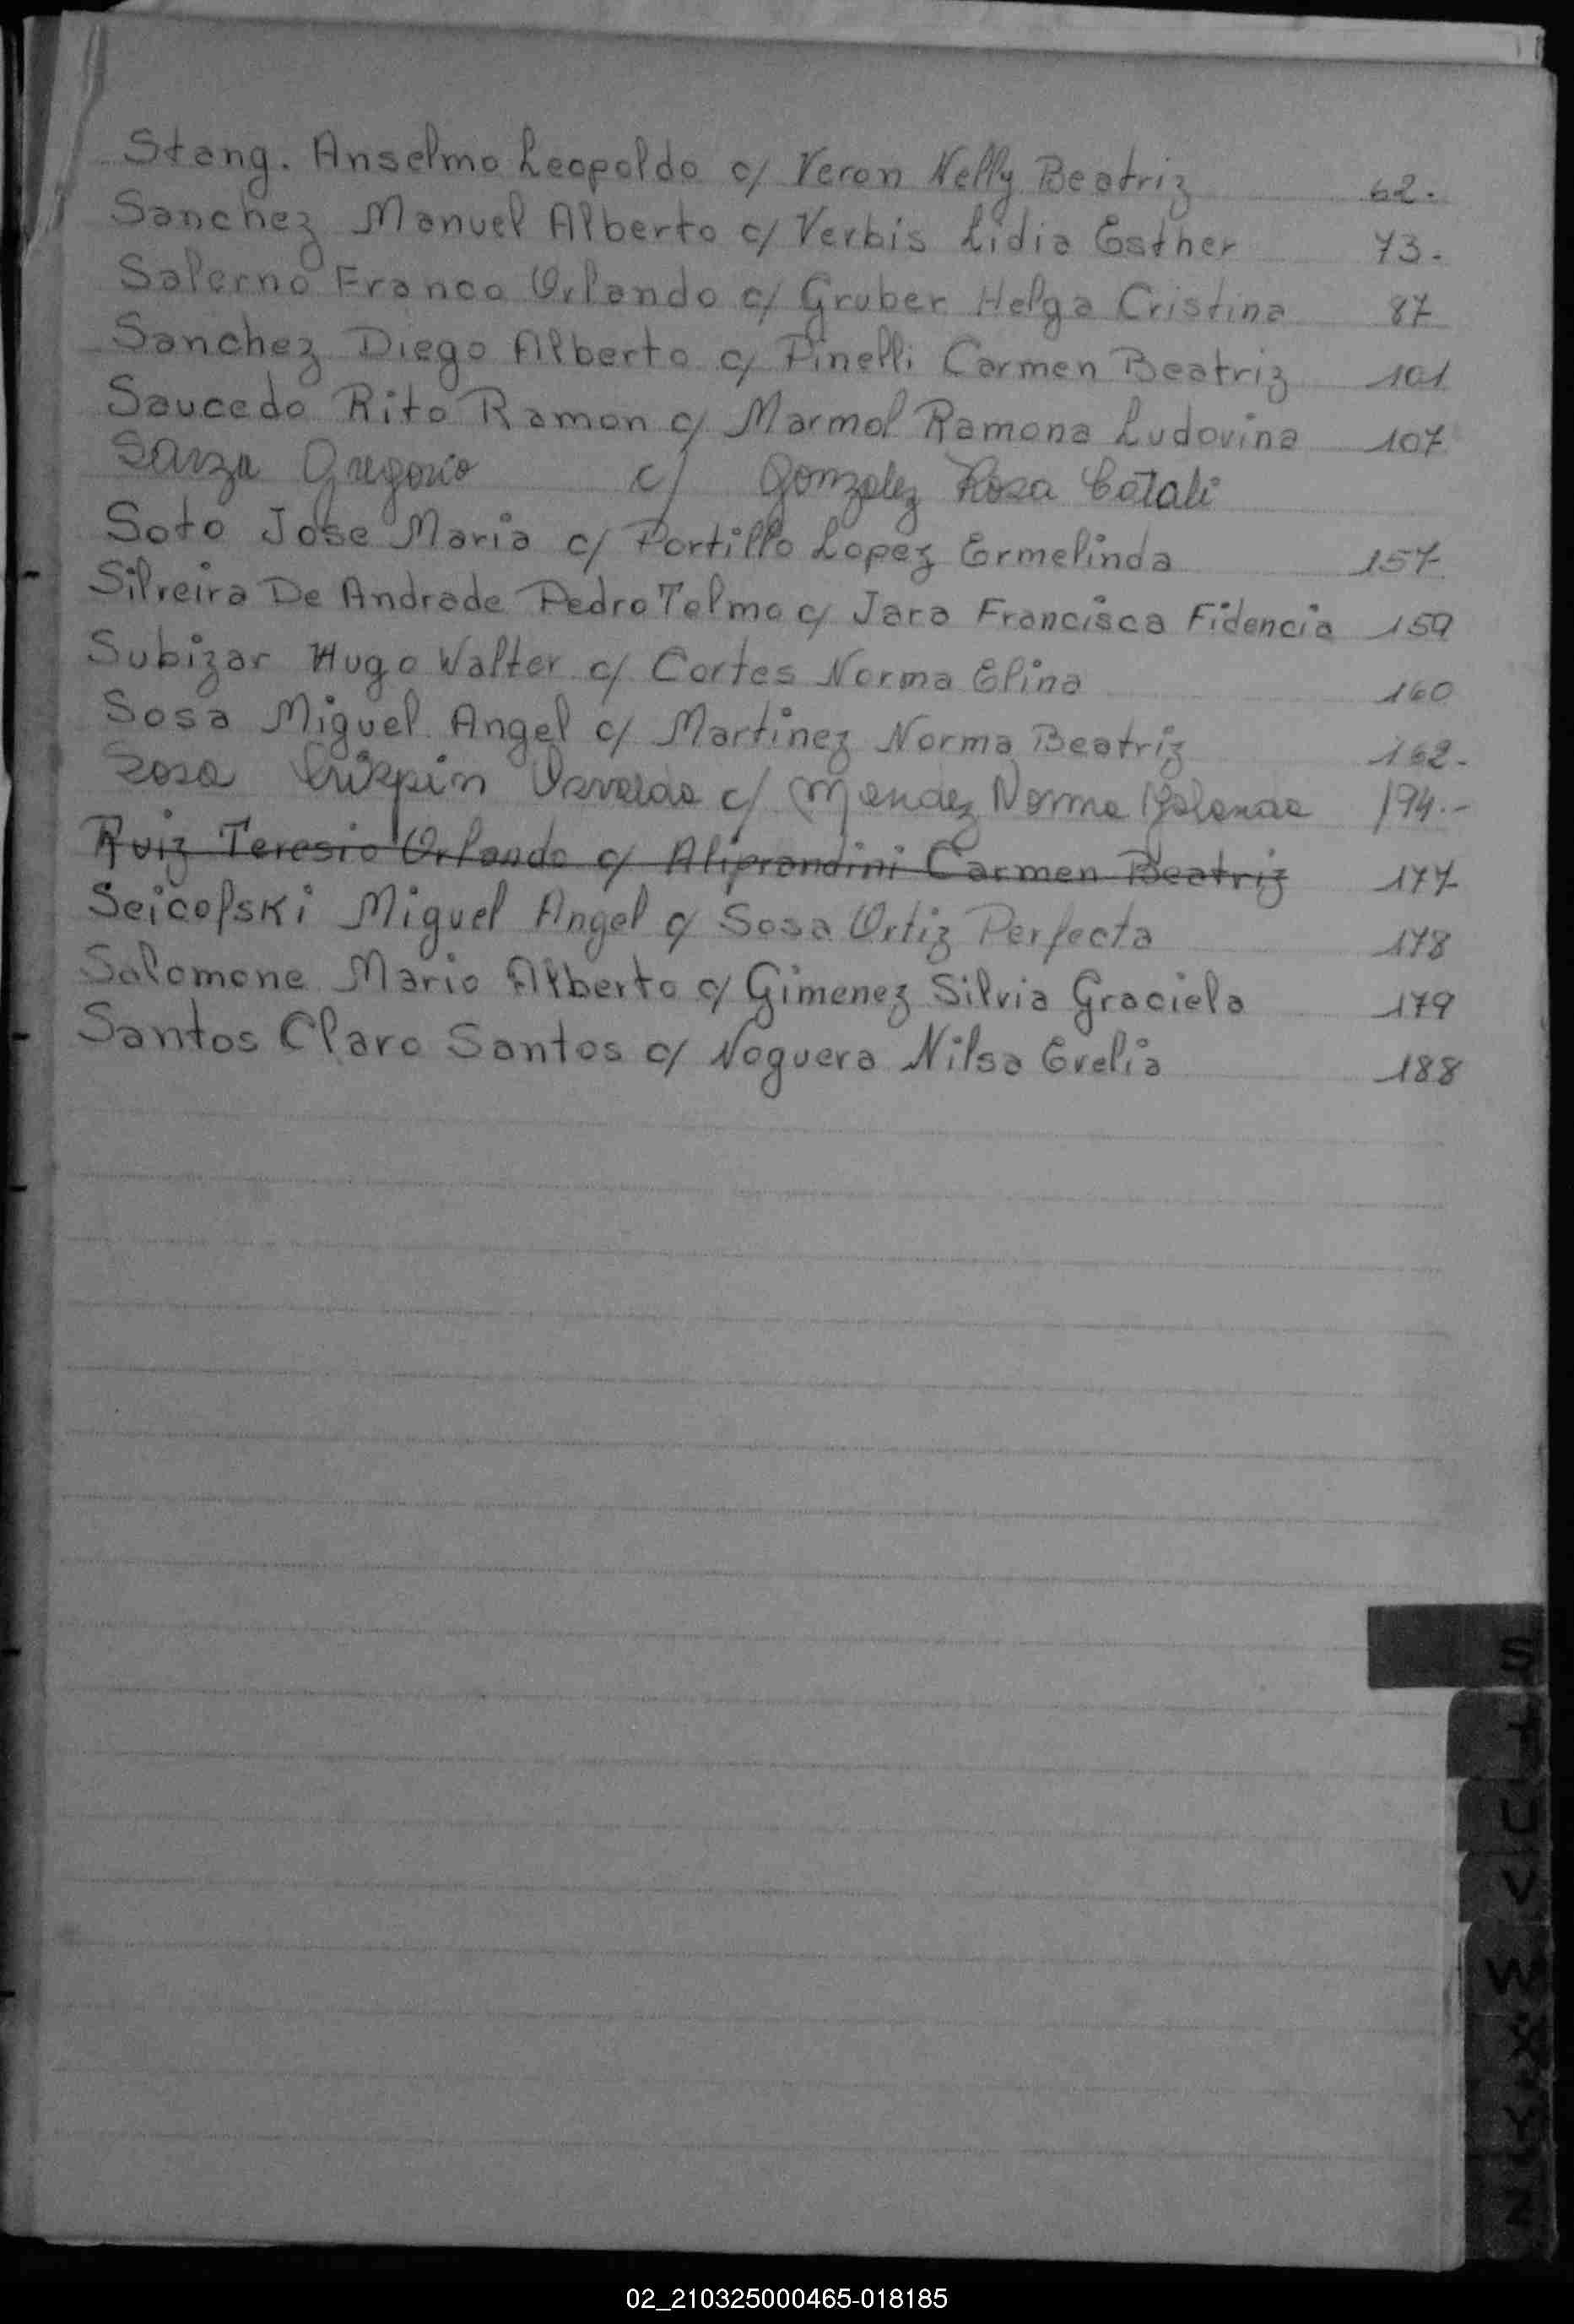 Stang. Anselmo Leopoldo c/ Veron Nelly Beatriz 62.
Sanchez Manuel Alberto c/ Verbis Lidia Esther 73.
Salerno Franco Orlando c/ Gruber Helga Cristina 87
Sanchez Diego Alberto c/ Pinelli Carmen Beatriz 101
Saucedo Rito Ramon c/ Marmol Ramona Ludovina 107
Sarza Gregorio c/ Gonzalez Rosa Catali
Soto Jose Maria c/ Portillo Lopez Ermelinda 157
Silveira De Andrade Pedro Telmo c/ Jara Francisca Fidencia 159
Subizar Hugo Walter c/ Cortes Norma Elina 160
Sosa Miguel Angel c/ Martinez Norma Beatriz 162.
Sosa Crispin Osvaldo c/ Mendez Norma 194.-
Ruiz Teresio Orlando c/ Aliprandini Carmen Beatriz 177
Seicofski Miguel Angel c/ Sosa Ortiz Perfecta 178
Salomone Mario Alberto c/ Gimenez Silvia Graciela 179
Santos Claro Santos c/ Noguera Nilsa Evelia 188
S
T
U
V
W
X
Y
Z
02_210325000465-018185